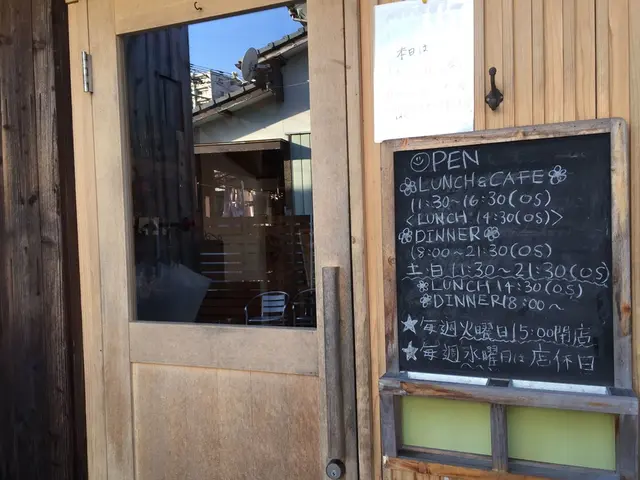 OPEN
LUNCH&CAFE
11:30~16:30(OS)
<LUNCH 14:30(OS)>
DINNER
18:00~21:30(OS)
土日 11:30~21:30(OS)
LUNCH 14:30(OS)
DINNER 18:00~
★毎週火曜日15:00閉店
★毎週水曜日は店休日